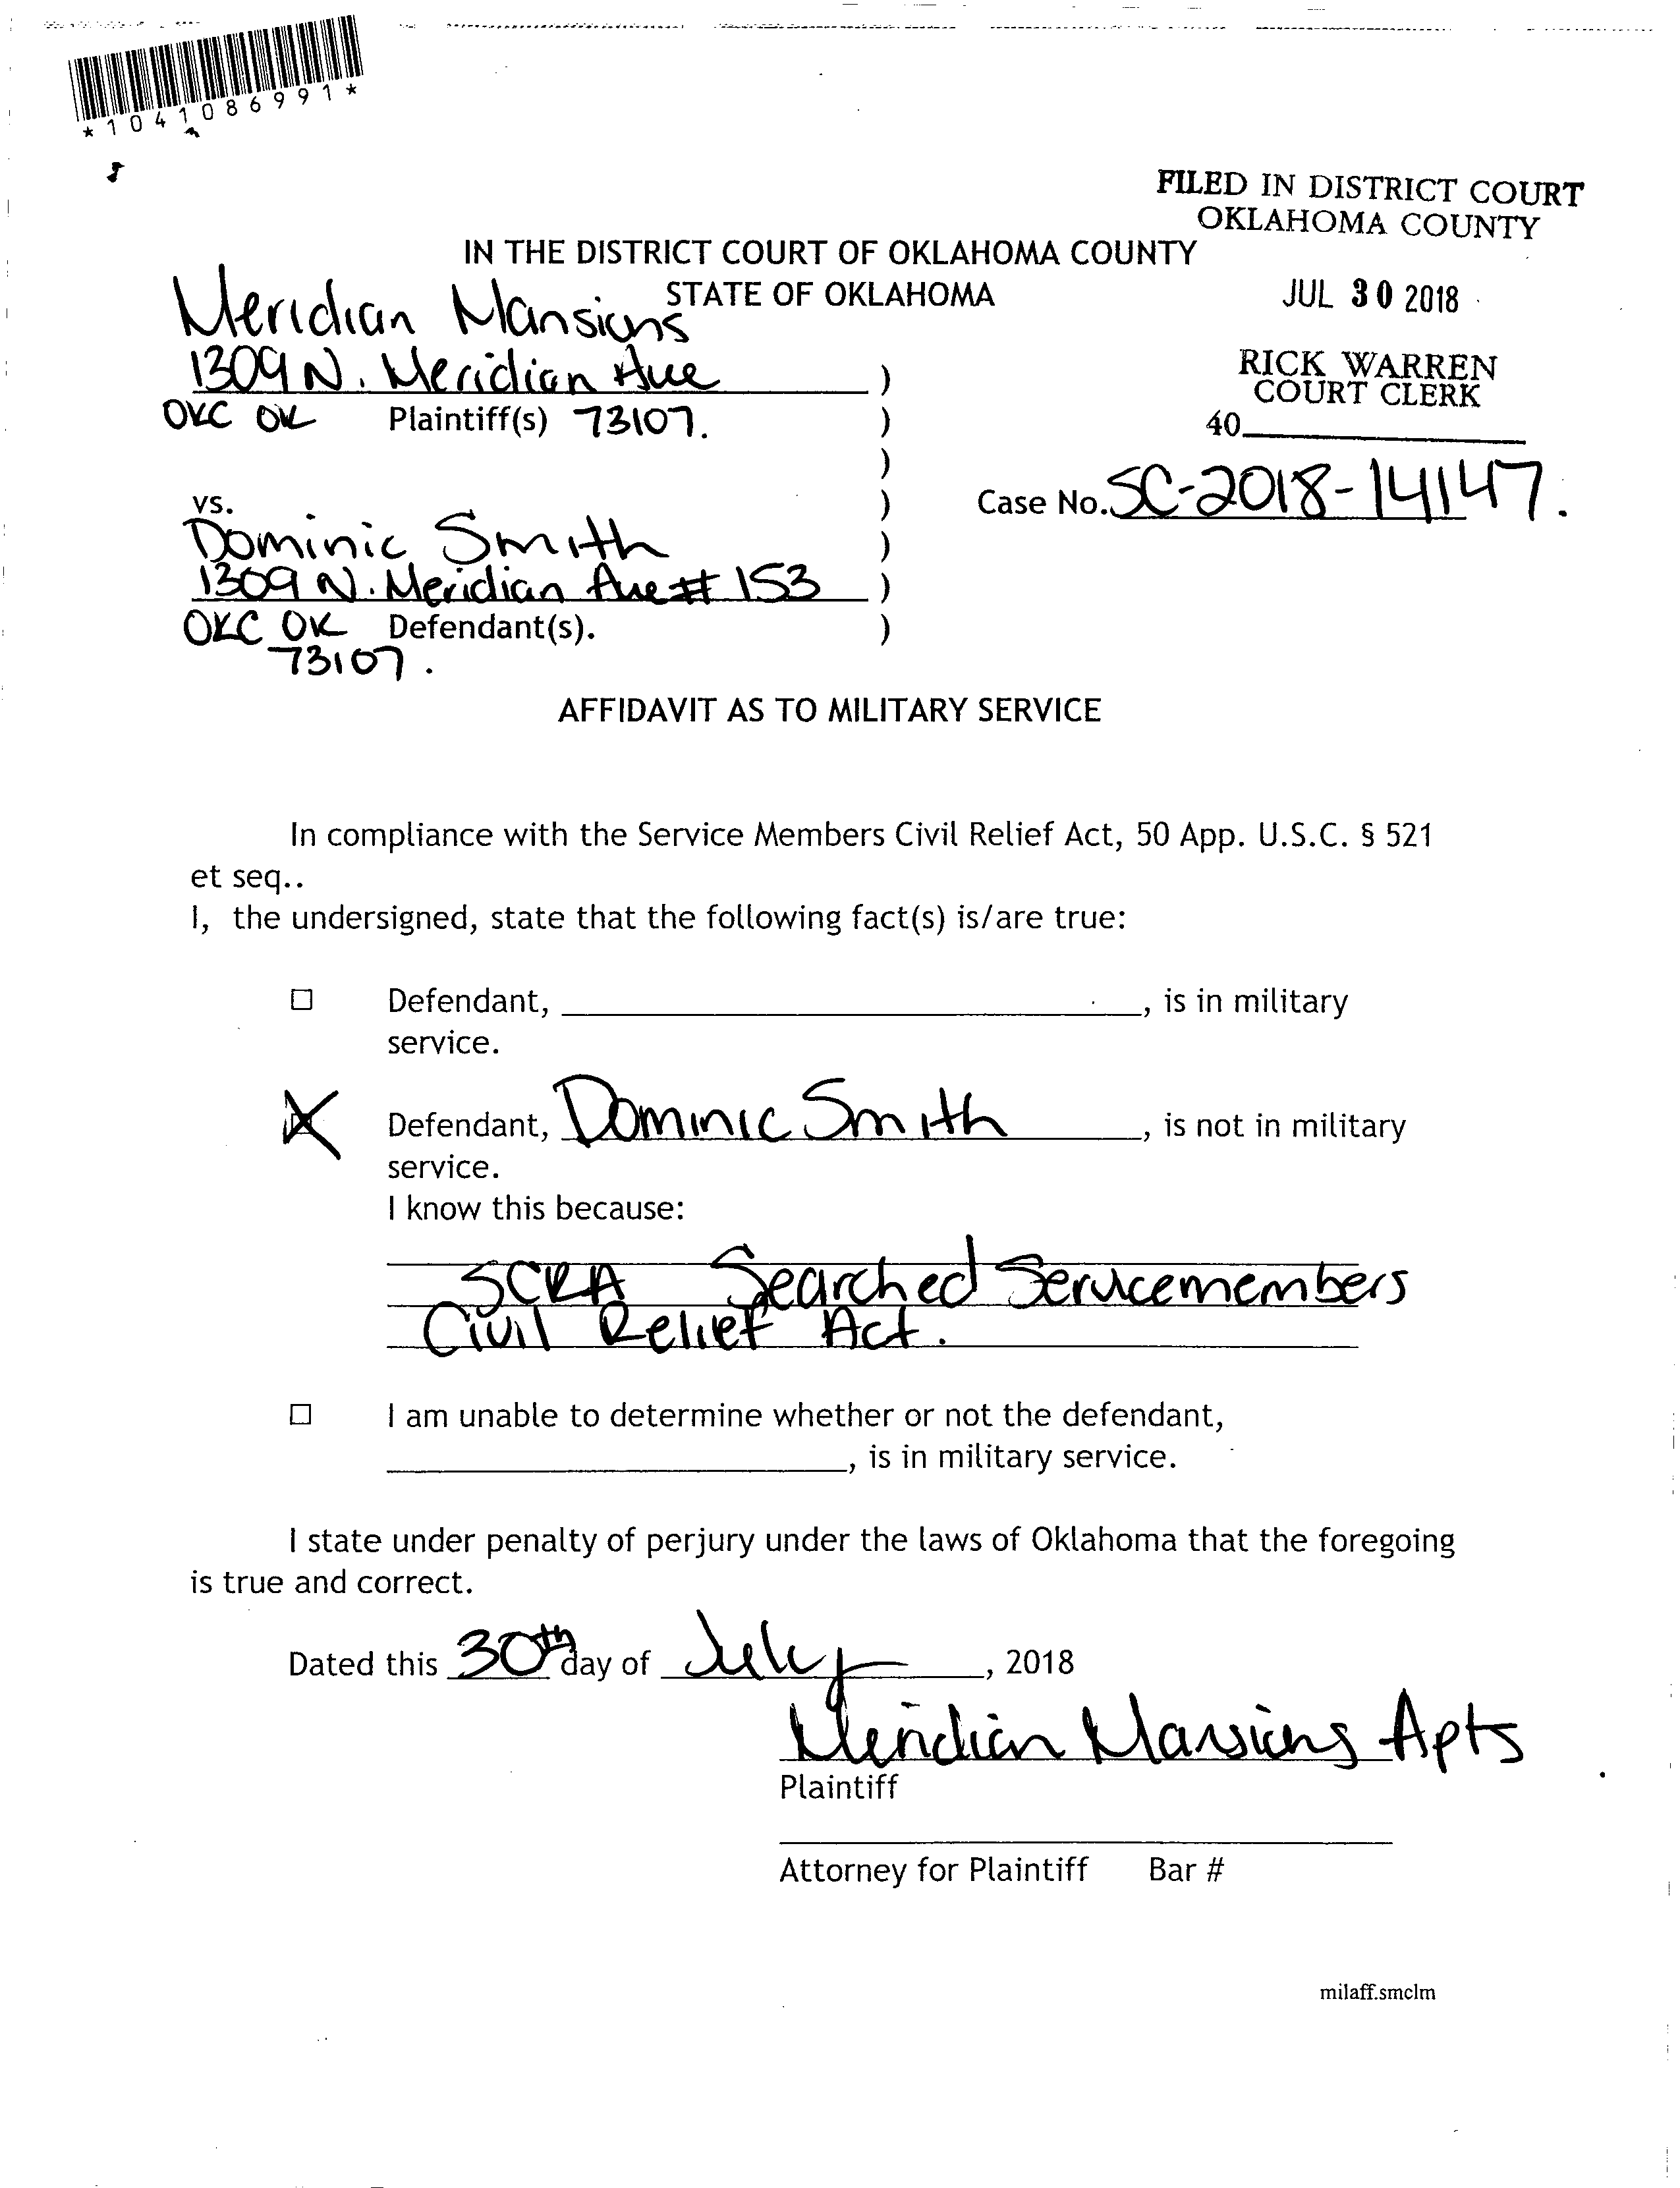 *1041086991*
FILED IN DISTRICT COURT
OKLAHOMA COUNTY
JUL 30 2018
RICK WARREN
COURT CLERK
40
IN THE DISTRICT COURT OF OKLAHOMA COUNTY
STATE OF OKLAHOMA
Meridian Mansions
1309 N. Meridian Ave )
OKC OK Plaintiff(s) 73107. )
)
vs. )
Case No. SC-2018-14147.
Dominic Smith )
1309 N. Meridian Ave # 153 )
OKC OK Defendant(s). )
73107.
AFFIDAVIT AS TO MILITARY SERVICE
In compliance with the Service Members Civil Relief Act, 50 App. U.S.C. § 521
et seq..
I, the undersigned, state that the following fact(s) is/are true:
☐ Defendant, , is in military
service.
☒ Defendant, Dominic Smith, is not in military
service.
I know this because:
SCRA Searched Servicemembers
Civil Relief Act.
☐ I am unable to determine whether or not the defendant,
, is in military service.
I state under penalty of perjury under the laws of Oklahoma that the foregoing
is true and correct.
Dated this 30th day of July, 2018
Meridian Mansions Apts
Plaintiff
Attorney for Plaintiff Bar #
milaff.smclm